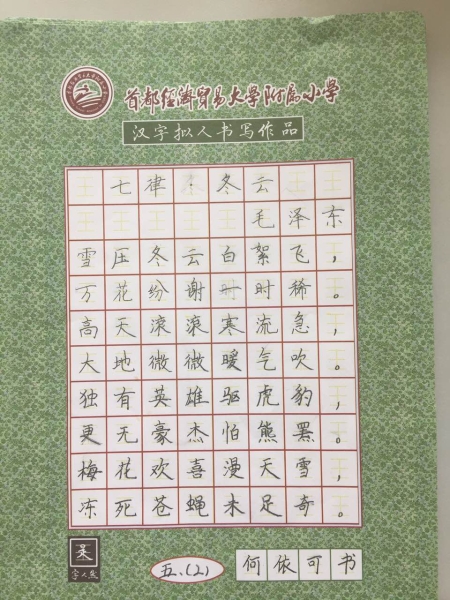 首都经济贸易大学附属小学
汉字拟人书写作品
七律·冬云
毛泽东
雪压冬云白絮飞，
万花纷谢一时稀。
高天滚滚寒流急，
大地微微暖气吹。
独有英雄驱虎豹，
更无豪杰怕熊罴。
梅花欢喜漫天雪，
冻死苍蝇未足奇。
五、(2) 何依可书